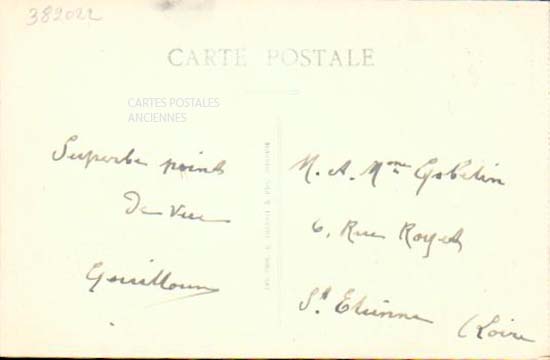 382022
CARTE POSTALE
CARTES POSTALES
ANCIENNES
Superbe point
De vue
M. A. Mme Gobelin
6, Rue Royet
St Etienne (Loire